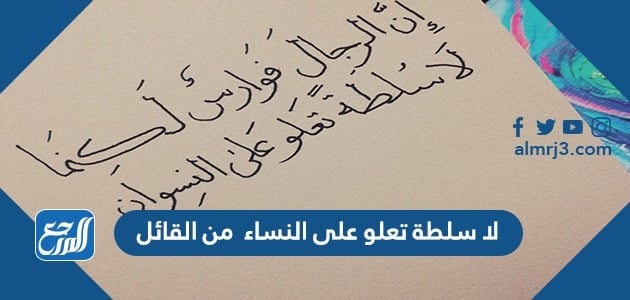 إنَّ الرجالَ فَوَارسٌ لَكِنمَا
لَا سُلطَةً تَعلَو عَلىٰ النِسوانِ
almrj3.com
لا سلطة تعلو على النساء من القائل
المرجع